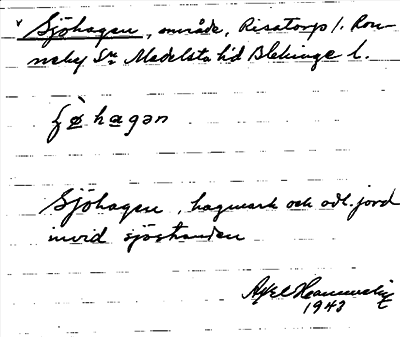 v Sjöhagen, område, Risatorp /. Ron-
neby Sn Medelsta hd Blekinge l.
ʃø̀hagən
Sjöhagen, hagmark och odl. jord
invid sjöstranden
Axel
1943